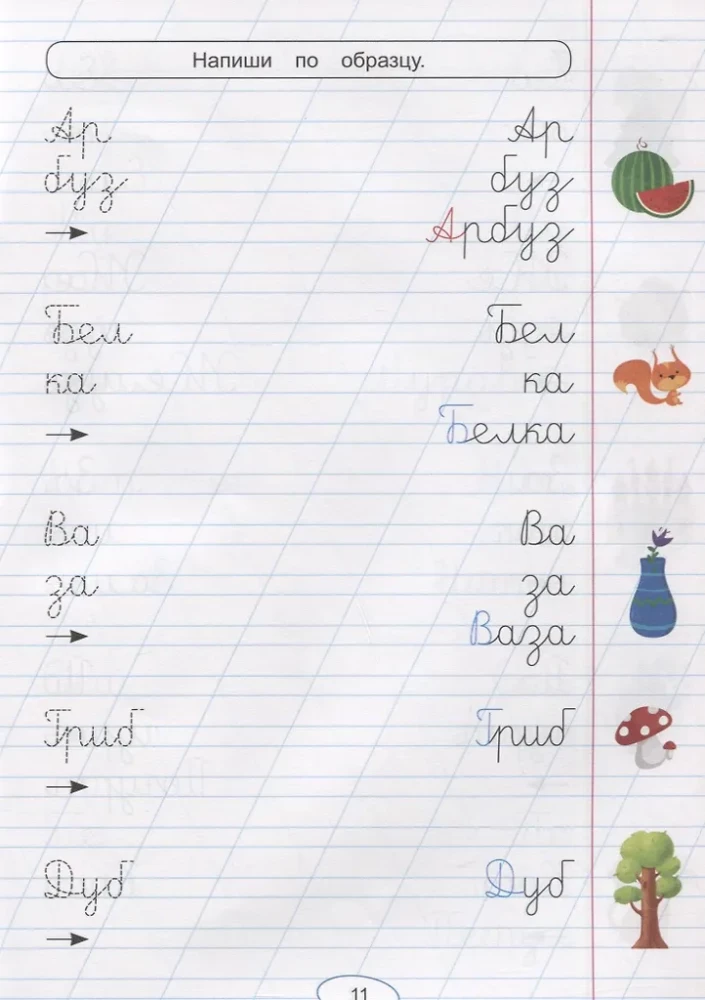 Напиши по образцу.
Ар Ар
буз буз
Арбуз
Бел Бел
ка ка
Белка
Ва Ва
за за
Ваза
Гриб Гриб
Дуб Дуб
11